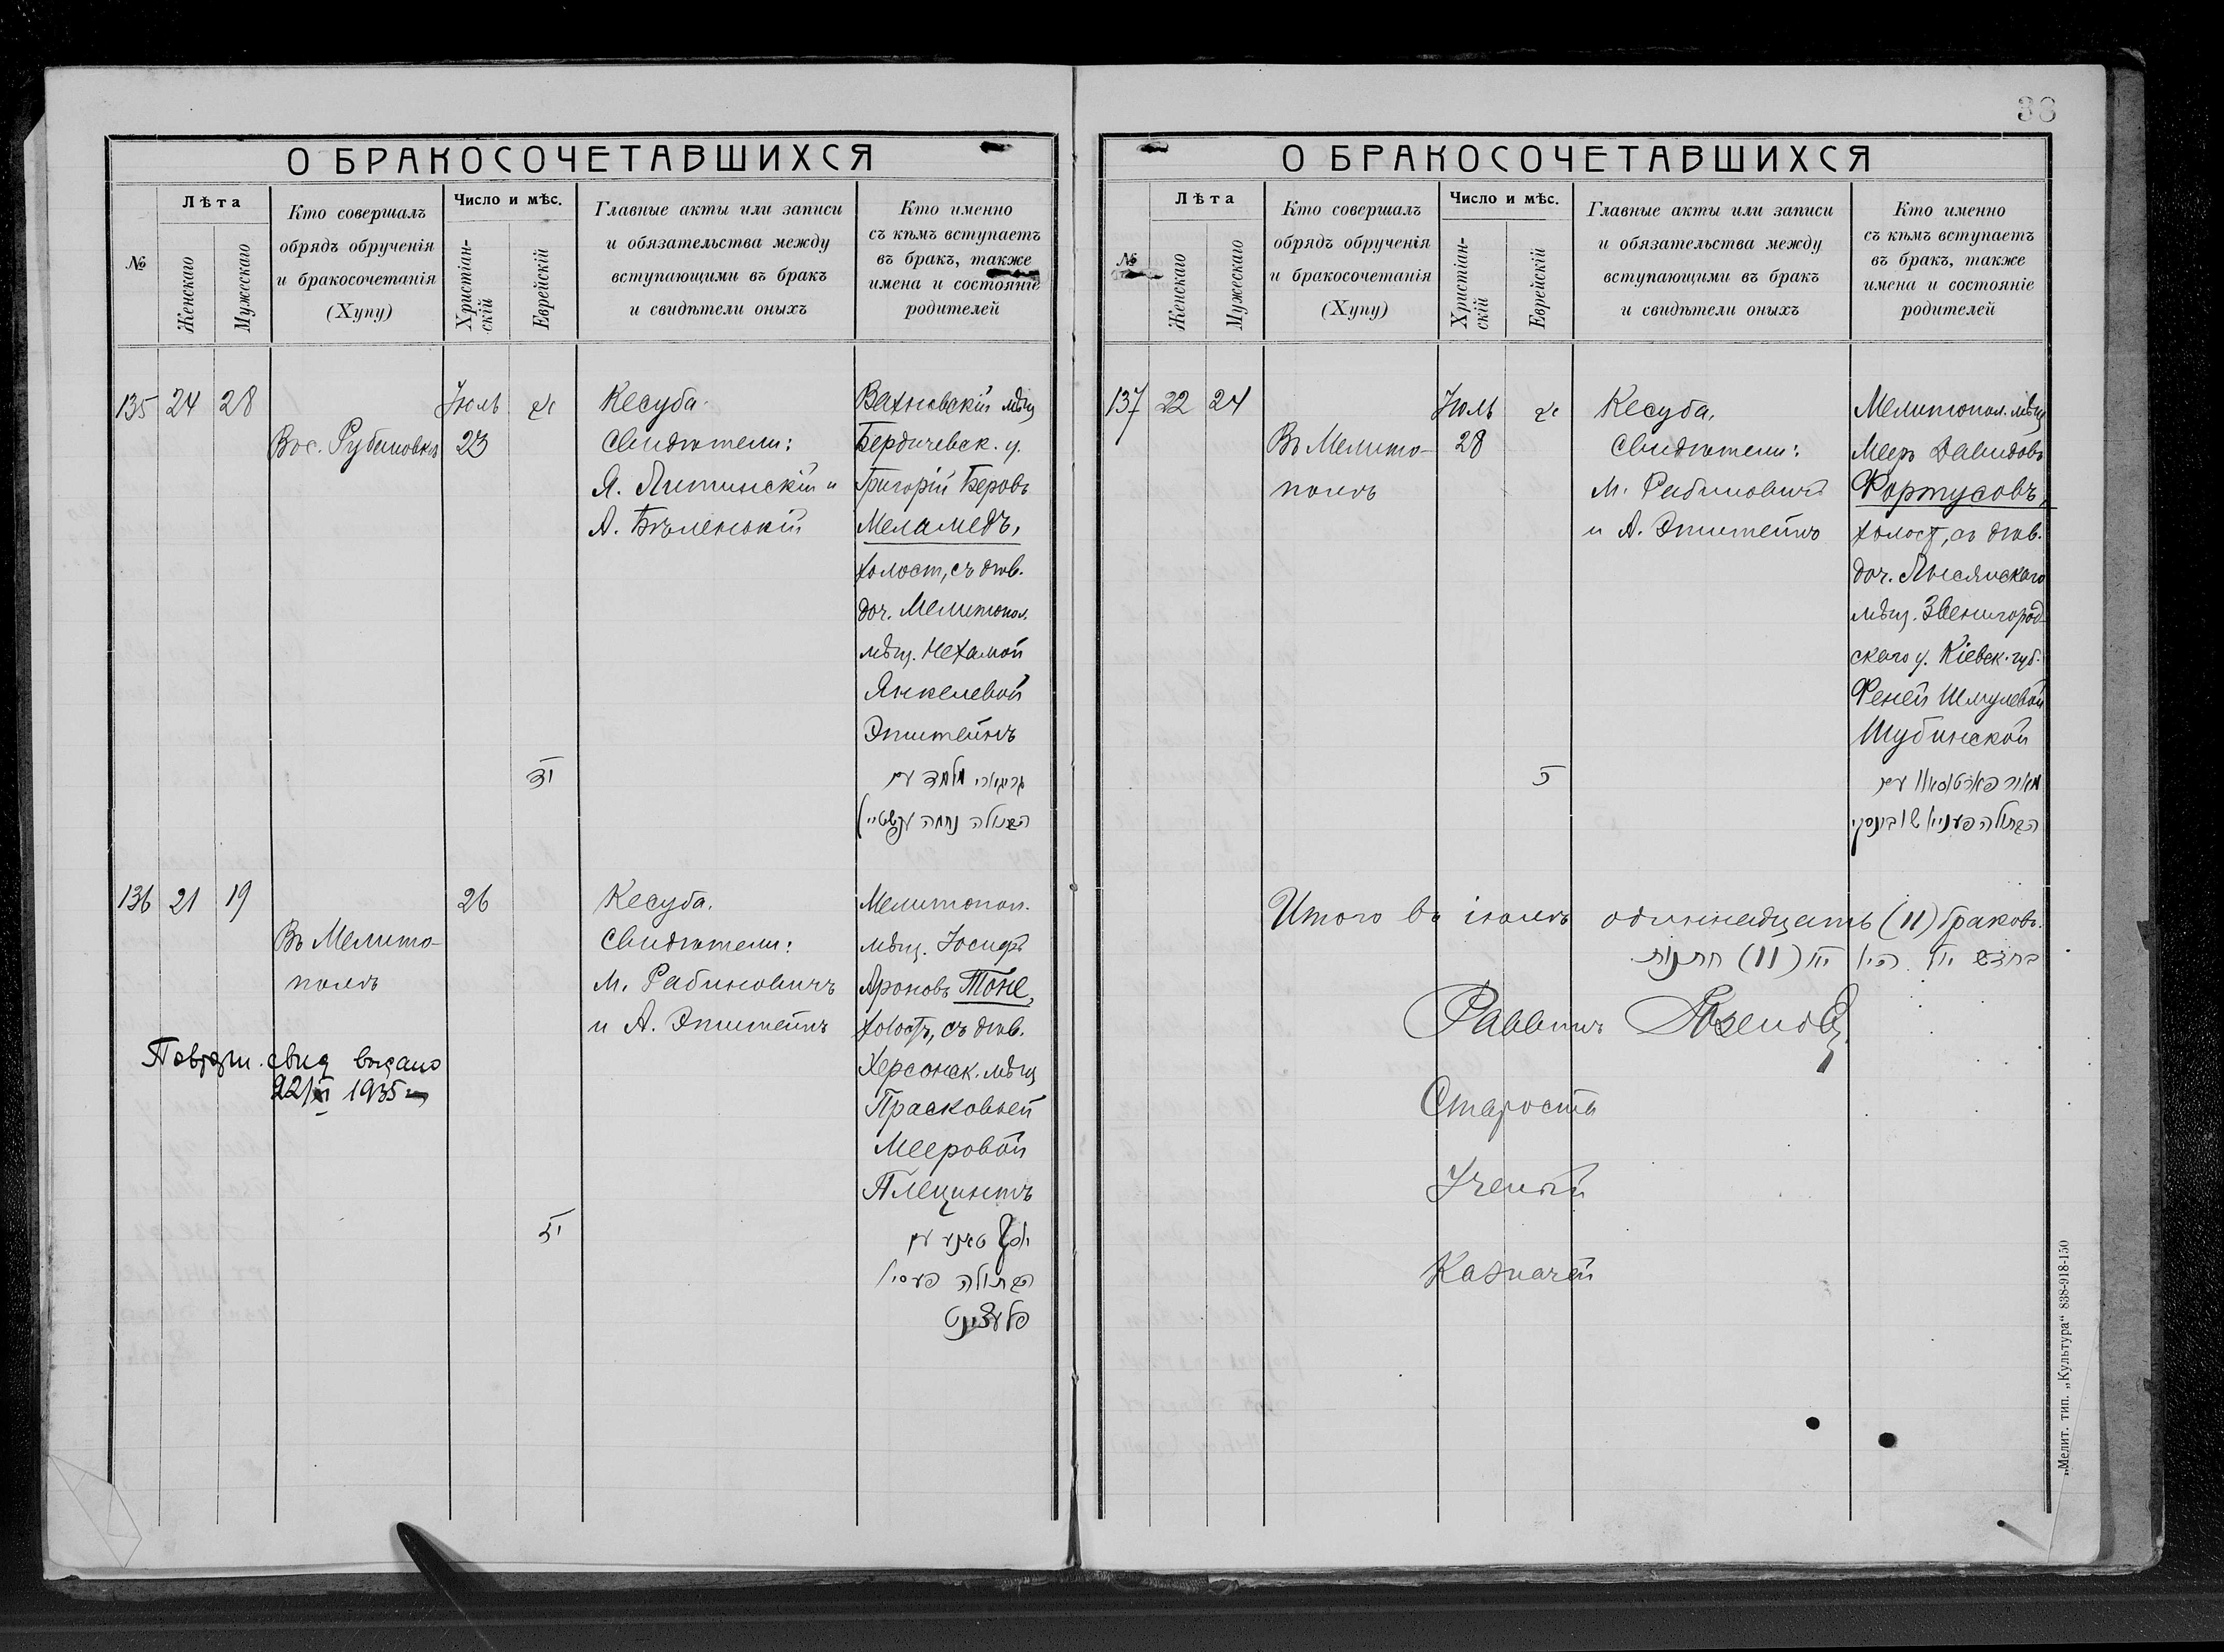 38
О БРАКОСОЧЕТАВШИХСЯ
№
Лѣта
Женскаго
Мужескаго
Кто совершалъ
обрядъ обрученія
и бракосочетанія
(Хупу)
Число и мѣс.
Христіан-
скій
Еврейскій
Главные акты или записи
и обязательства между
вступающими въ бракъ
и свидѣтели оныхъ
Кто именно
съ кѣмъ вступаетъ
въ бракъ, также
имена и состояніе
родителей
135 24 28
Іюль
23
Кесуба.
Свидѣтели:
Я. Литинскій и
А. Бѣленькій
Вахновскій мѣщ
Бердичевск. у.
Григорій Беровъ
Меламедъ,
холост, съ дѣв.
доч. Мелитопол.
мѣщ. Нехамой
Янкелевой
Эпштейнъ
הבתולה נחמה עפשטיין
136 21 19
Въ Мелито-
полѣ
26
Кесуба.
Свидѣтели:
М. Рабиновичъ
и А. Эпштейнъ
Мелитопол.
мѣщ. Іосифъ
Ароновъ Тоне,
холостъ, съ дѣв.
Херсонск. мѣщ
Прасковьей
Мееровой
Плецинтъ
הבתולה
Повторн. свид выдано
1935
О БРАКОСОЧЕТАВШИХСЯ
№
Лѣта
Женскаго
Мужескаго
Кто совершалъ
обрядъ обрученія
и бракосочетанія
(Хупу)
Число и мѣс.
Христіан-
скій
Еврейскій
Главные акты или записи
и обязательства между
вступающими въ бракъ
и свидѣтели оныхъ
Кто именно
съ кѣмъ вступаетъ
въ бракъ, также
имена и состояніе
родителей
137 22 24
Въ Мелито-
полѣ
Іюль
28
Кесуба.
Свидѣтели:
М. Рабиновичъ
и А. Эпштейнъ
Мелитопол. мѣщ
Меер Давидовъ
Фортусовъ,
холост, съ дѣв.
доч. Лысянскаго
мѣщ. Звенигород-
скаго у. Кіевск. губ.
Феней Шмулевой
Шубинской
Итого въ іюлѣ одиннадцать (11) браковъ.
(11) חתנות
Раввинъ
Староста
Ученый
Казначей
„Мелит. тип. „Культура“ 838-918-150